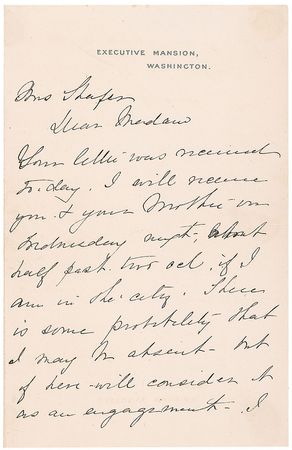 EXECUTIVE MANSION,
WASHINGTON.
Mrs Shafer
Dear Madam
Your letter was received
to-day. I will receive
you & your Mother on
Wednesday next, about
half past two ocl, if I
am in the city. There
is some probability that
I may be absent - but
if here will consider it
as an engagement - I